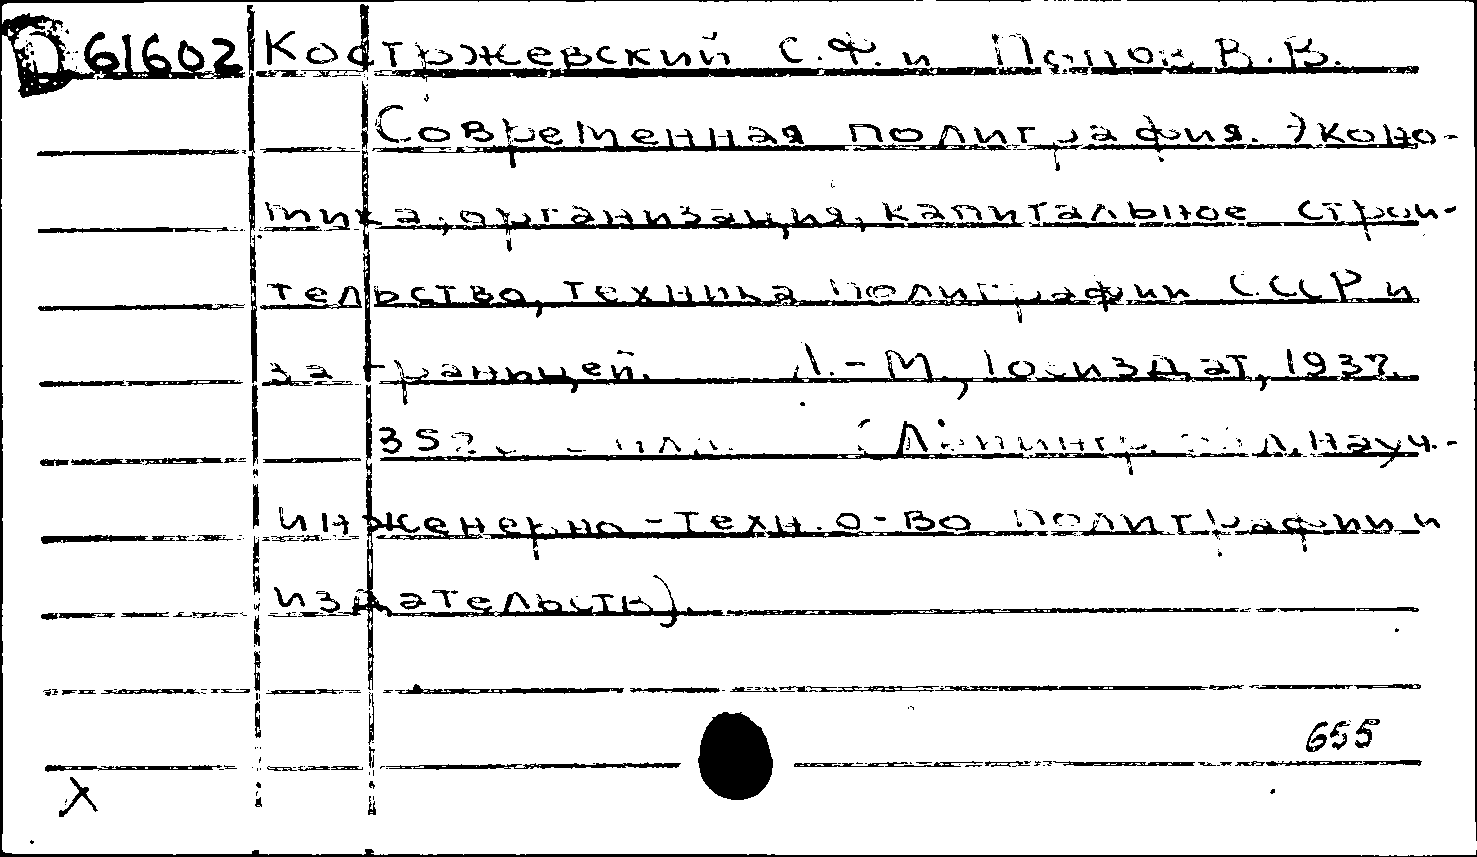 D 61602 Костржевский С.Ф. и Попов В.В.
Современная полиграфия. Эконо-
мика, организация, капитальное строи-
тельство, техника полиграфии СССР и
за границей. Л.-М., Госиздат, 1937.
352 с. с илл. (Ленингр. отдел. науч.-
инженерно-техн. о-во полиграфии и
издательств).
655
X